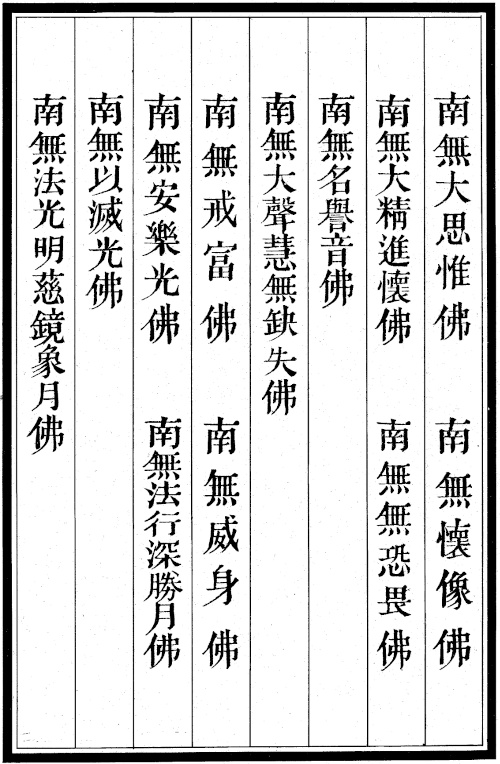 南無大思惟佛　南無懷像佛
南無大精進懷佛　南無無恐畏佛
南無名譽音佛
南無大聲慧無缺失佛
南無戒富佛　南無威身佛
南無安樂光佛　南無法行深勝月佛
南無以滅光佛
南無法光明慈鏡象月佛